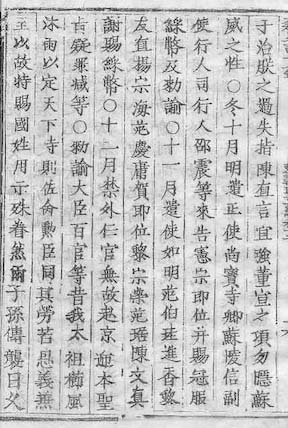 于治朕之過失指陳有言宜強董宣之項勿隱蘇
威之性○冬十月明遣正使尚寶寺卿凌信副
使行人司行人邵震等來告憲宗即位并賜冠服
綵幣及勅諭○十一月遣使如明范伯珪進香黎
友直楊宗海范慶庸賀即位黎宗榮范琚陳文真
謝賜綵幣○十二月禁外任官無故赴京 本聖
等○勅諭大臣百官等昔我太祖櫛風
沐雨以定天下時則佐命勲臣同其勞苦恩義無
至以故特賜國姓用示殊眷然而子孫傳襲日久